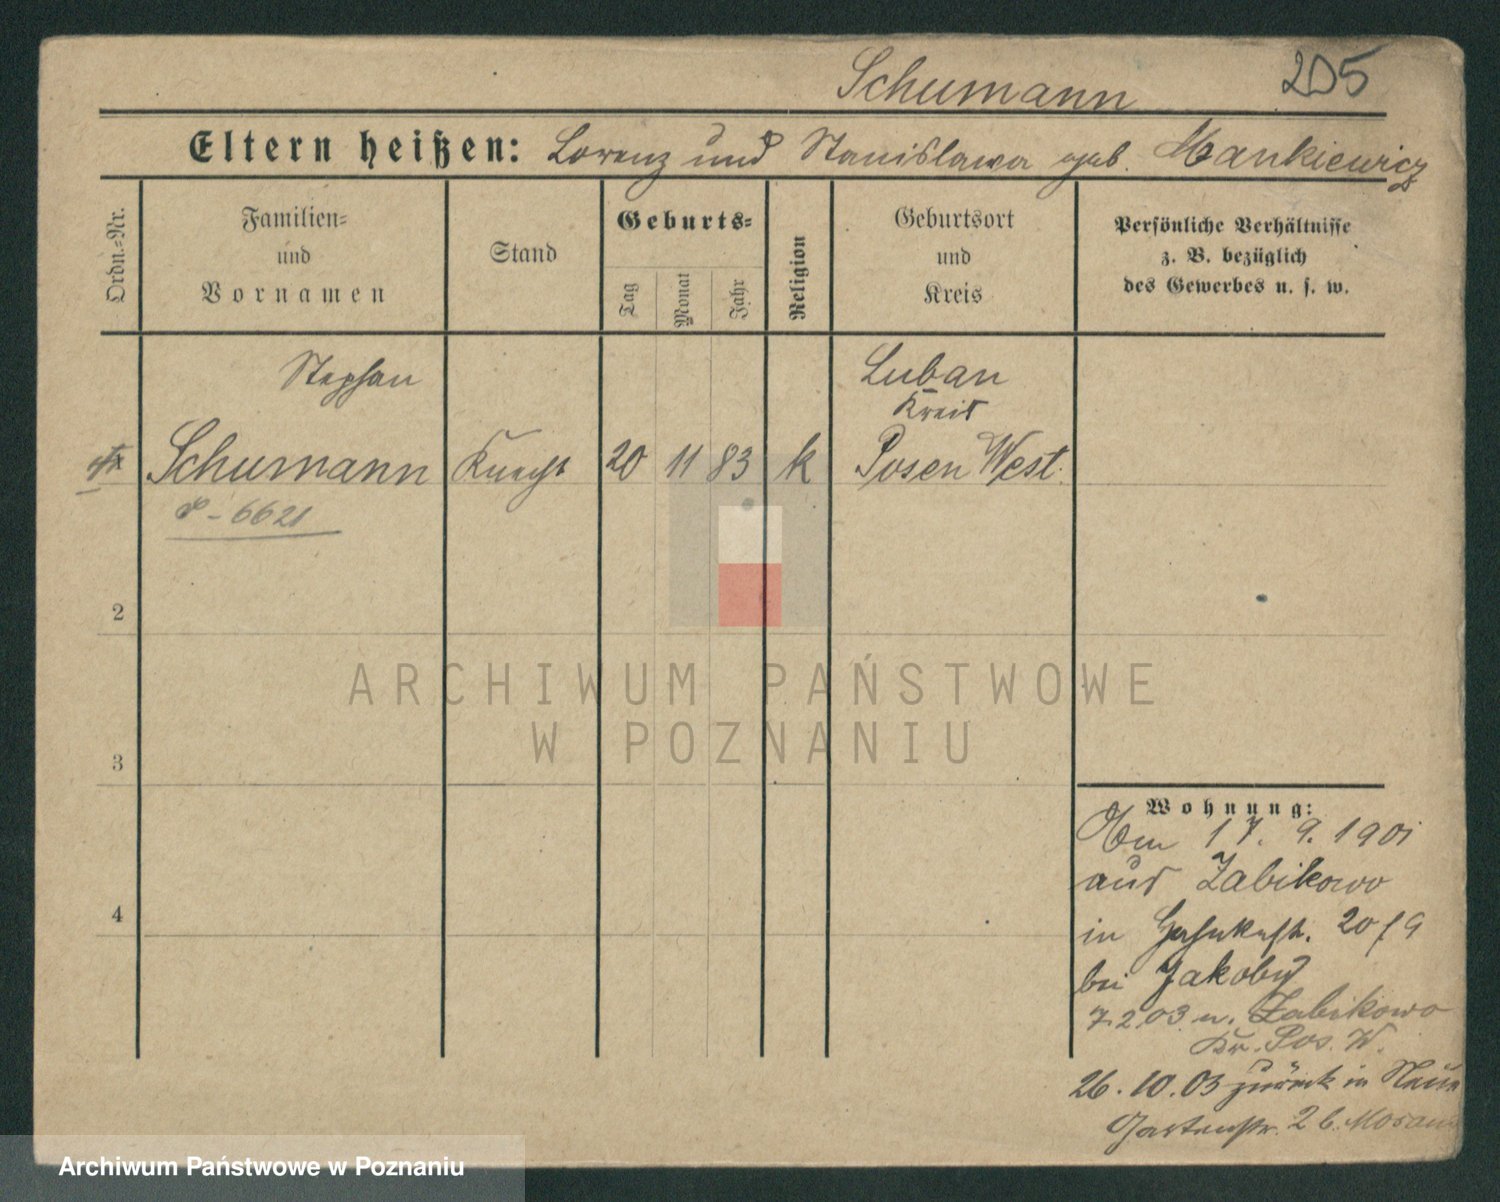 Schumann 205
Eltern heißen: Lorenz und Stanislawa geb. Mankiewicz
Ordn.=Nr.
Familien=
und
Vornamen
Stand
Geburts=
Tag
Monat
Jahr
Religion
Geburtsort
und
Kreis
Persönliche Verhältnisse
z. B. bezüglich
des Gewerbes u. s. w.
Stephan
Schumann Knecht 20 11 83 k
Luban
Kreis
Posen West.
6621
2
3
4
ARCHIWUM PAŃSTWOWE
W POZNANIU
Wohnung:
Am 17. 9. 1901
aus Zabikowo
in 20/9
bei Jakoby
7.2.03 n. Zabikowo
Kr. Pos. W.
26.10.03 zurück in
Gartenstr. 2 b.
Archiwum Państwowe w Poznaniu